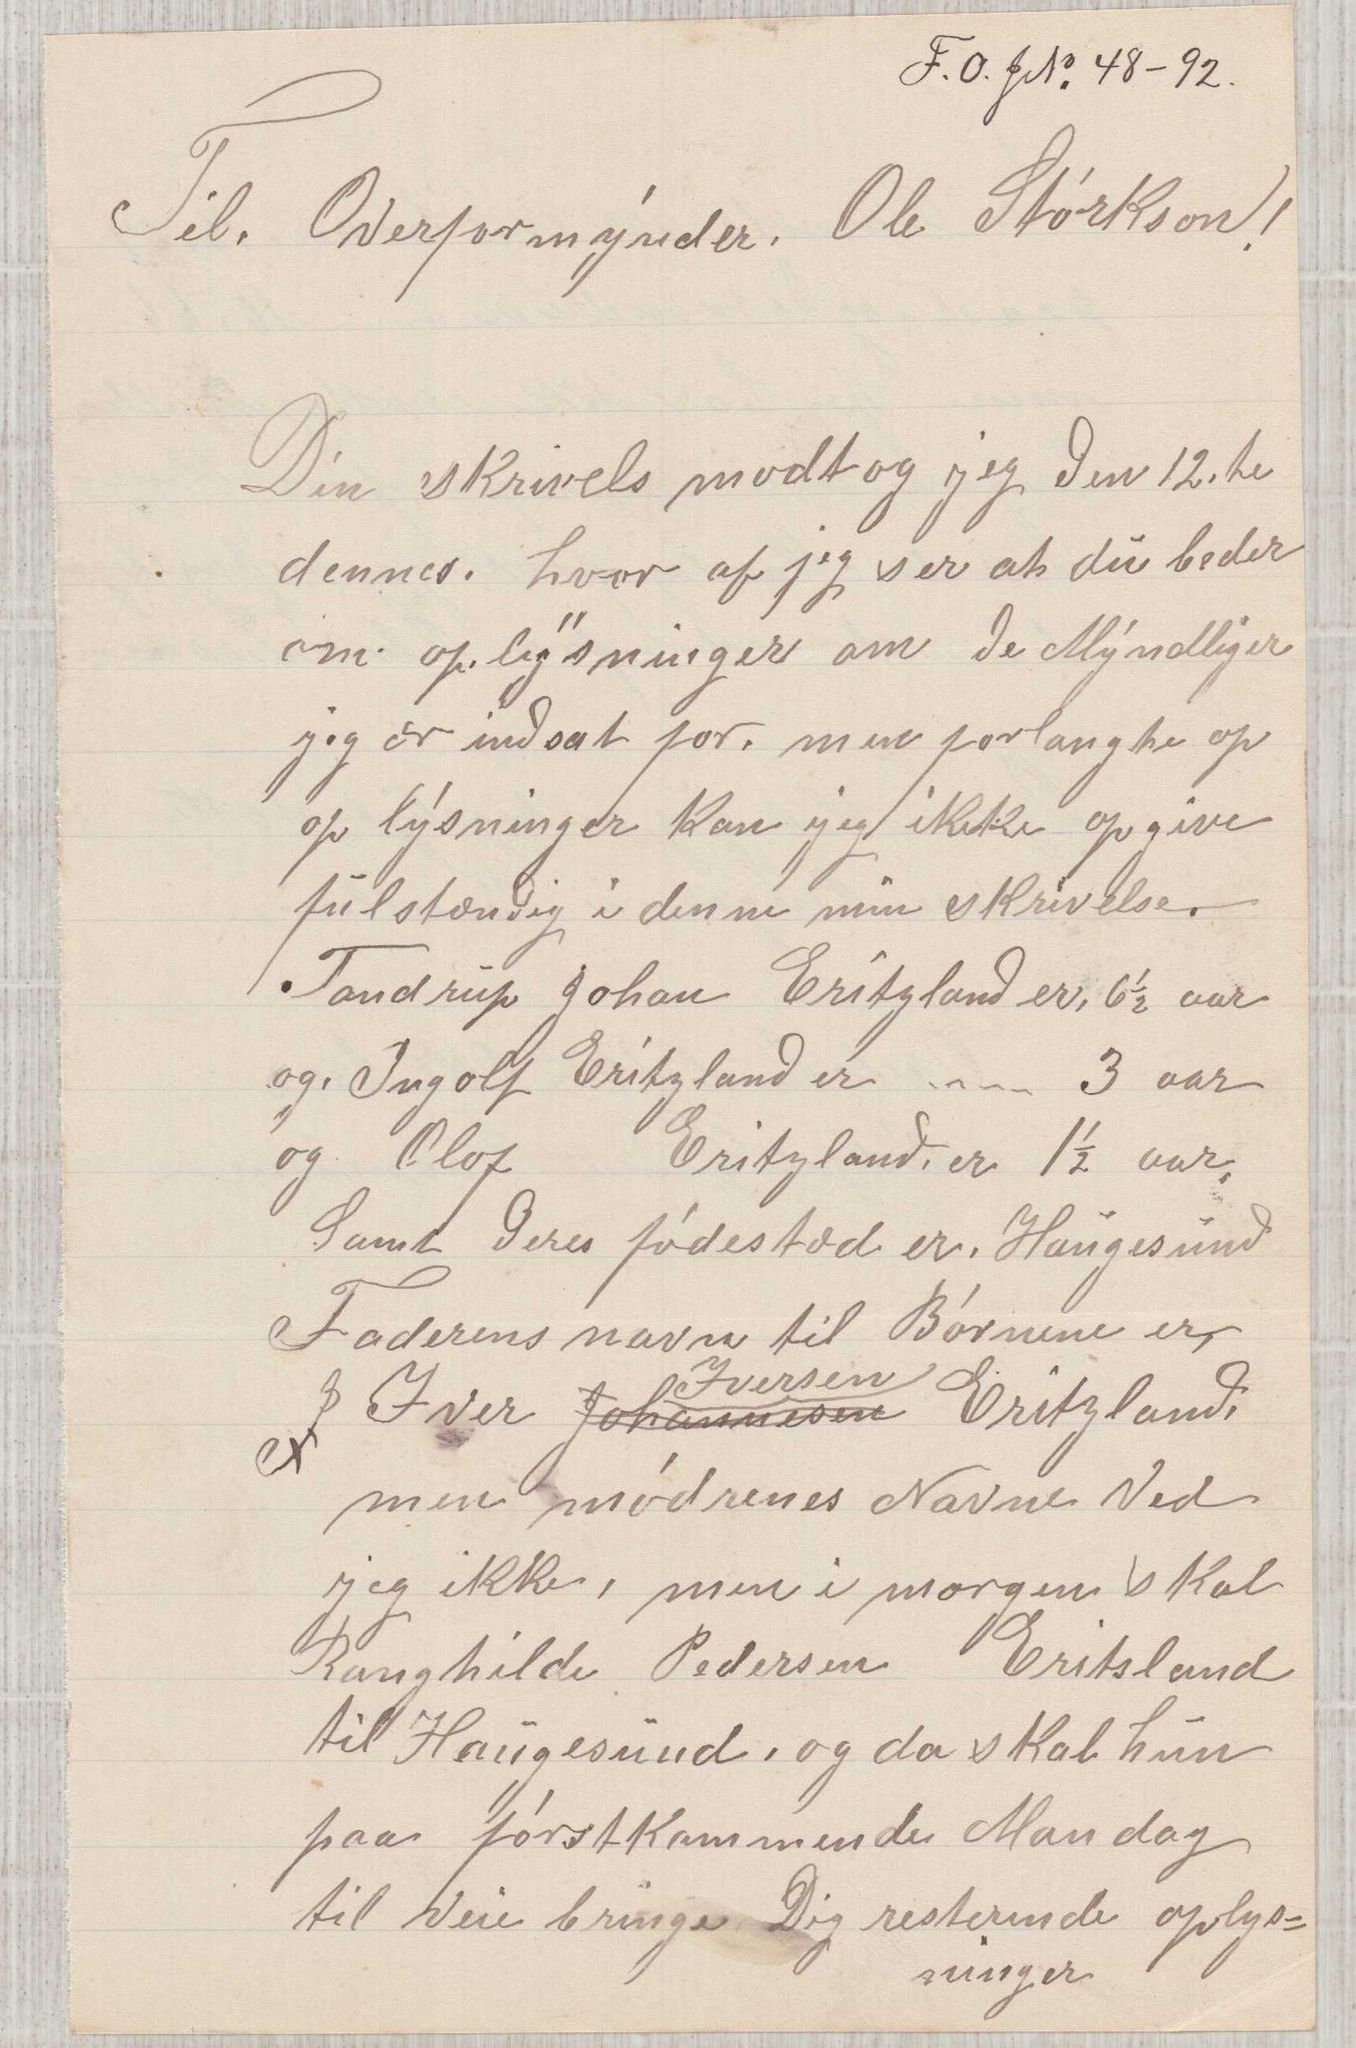 F.O. JNo. 48-92.
Til. Overformýnder. Ole Stórkson!
Din skrivels modtog jeg den 12.te
dennes. hvor af jeg ser at dŭ beder
om oplysninger om de Mýndliger
jeg er indsat for. men forlangte op
op lýsninger kan jeg ikke opgive
fŭlstændig i denne min skrivelse.
Tandrŭp Johan Eritzland er, 6½ aar
og. Ingolf Eritzland er ---- 3 aar
og Olof Eritzland. er 1½ aar.
Samt deres fódestæd er. Haŭgesŭnd
Faderens navn til Bórnene er,
J Iver Johannesen Iversen Eritzland.
men módrenes Navne Ved
jeg ikke, men i morgen skal
Ranghilde Pedersen Eritsland
til Haŭgesŭnd. og da skal hŭn
paa fórstkommende Mandag
til Veie bringe Dig resterende oplys=
ninger